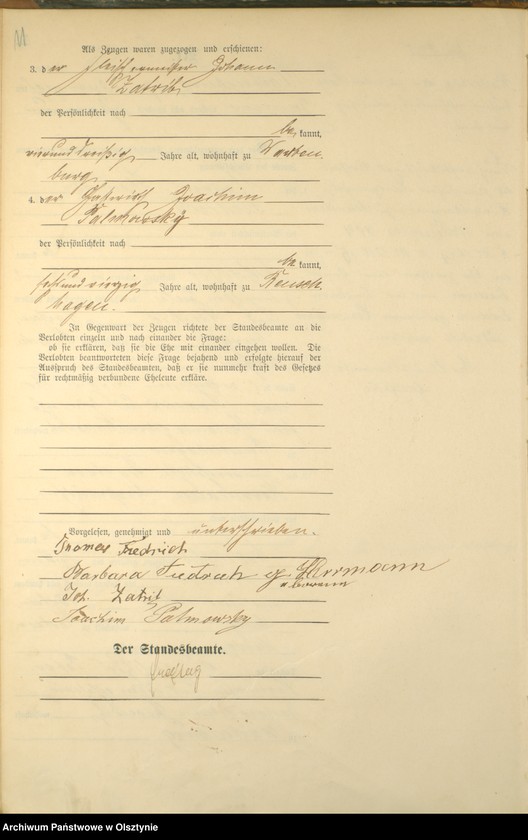 11
Als Zeugen waren zugezogen und erschienen:
3. der Fleischermeister Johann
Zatrib,
der Persönlichkeit nach
be kannt,
vierunddreißig Jahre alt, wohnhaft zu Warten
burg
4. der Gastwirth Joachim
Palmowsky
der Persönlichkeit nach
be kannt,
Jahre alt, wohnhaft zu Reusch
hagen.
In Gegenwart der Zeugen richtete der Standesbeamte an die
Verlobten einzeln und nach einander die Frage:
ob sie erklären, daß sie die Ehe mit einander eingehen wollen. Die
Verlobten beantworteten diese Frage bejahend und erfolgte hierauf der
Ausspruch des Standesbeamten, daß er sie nunmehr kraft des Gesetzes
für rechtmäßig verbundene Eheleute erkläre.
Vorgelesen, genehmigt und unterschrieben.
Thomas Fredrich
Barbara Fredrich g Herrmann
Joh. Zatrib
Joachim Palmowsky
Der Standesbeamte.
Archiwum Państwowe w Olsztynie